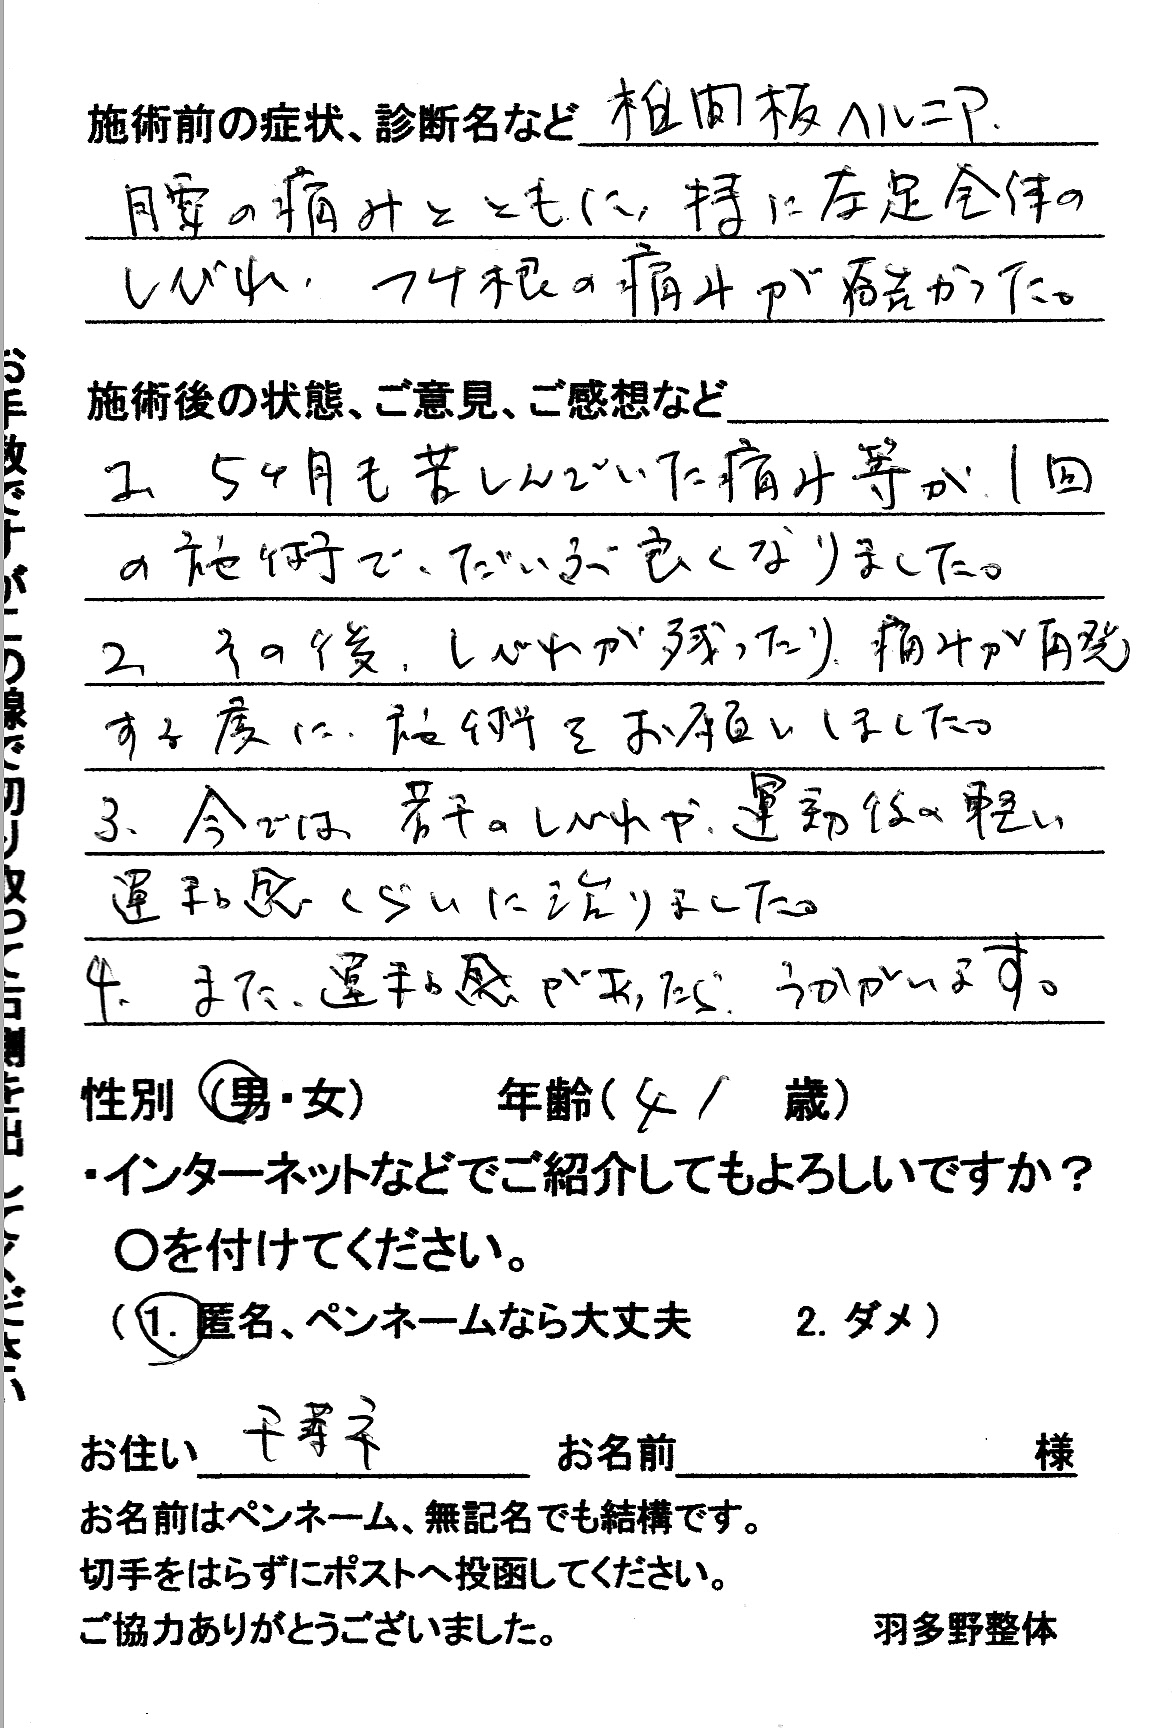 施術前の症状、診断名など 椎間板ヘルニア.
腰の痛みとともに、特に左足全体の
しびれ、つけ根の痛みが酷かった。
施術後の状態、ご意見、ご感想など
1、5ヶ月も苦しんでいた痛み等が、1回
の施術で、だいぶ良くなりました。
2、その後、しびれが残ったり、痛みが再発
する度に、施術をお願いしました。
3、今では、若干のしびれや、運動後の軽い
違和感くらいに治りました。
4、また、違和感があったら、うかがいます。
性別(男・女) 年齢(41 歳)
・インターネットなどでご紹介してもよろしいですか?
○を付けてください。
(1. 匿名、ペンネームなら大丈夫 2. ダメ)
お住い 千葉市 お名前 様
お名前はペンネーム、無記名でも結構です。
切手をはらずにポストへ投函してください。
ご協力ありがとうございました。 羽多野整体
お手数ですがこの線で切り取って右側を出してください